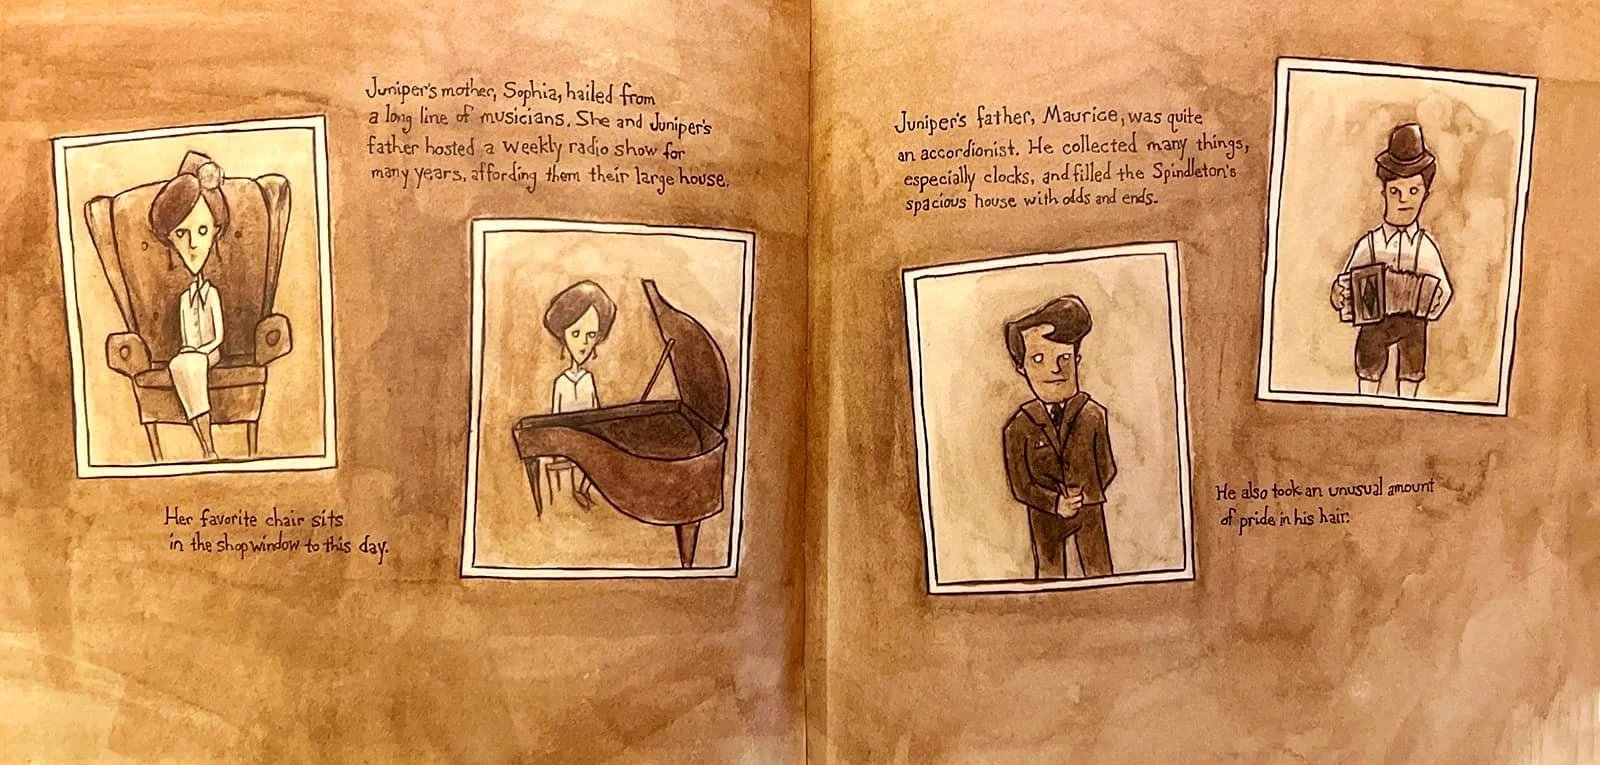 Juniper's mother, Sophia, hailed from
a long line of musicians. She and Juniper's
father hosted a weekly radio show for
many years, affording them their large house.
Her favorite chair sits
in the shop window to this day.
Juniper's father, Maurice, was quite
an accordionist. He collected many things,
especially clocks, and filled the Spindleton's
spacious house with odds and ends.
He also took an unusual amount
of pride in his hair.